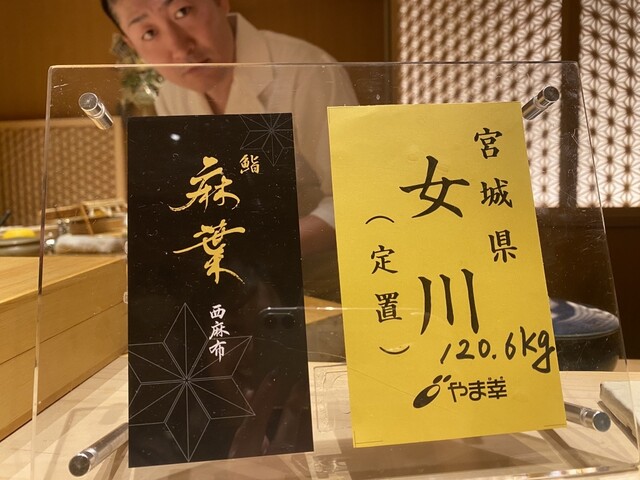 鮨
麻葉
西麻布
宮城県
女川
(定置)
120.6kg
やま幸